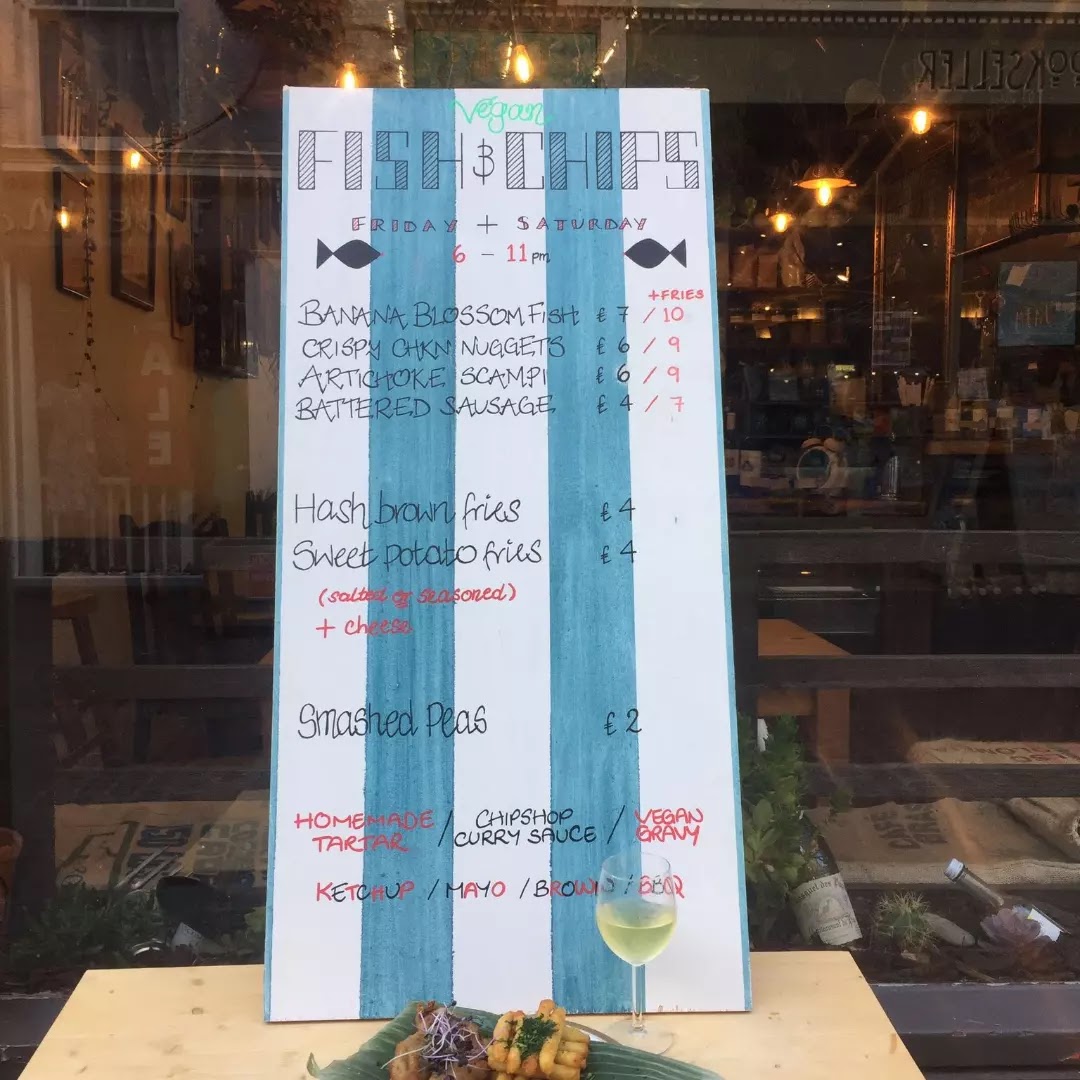 OKSELLER
Vegan
FISH & CHIPS
FRIDAY + SATURDAY
6 - 11pm
+FRIES
BANANA BLOSSOM FISH £7 / 10
CRISPY CHKN NUGGETS £6 / 9
ARTICHOKE SCAMPI £6 / 9
BATTERED SAUSAGE £4 / 7
Hash brown fries £4
Sweet potato fries £4
(salted or seasoned)
+ cheese
Smashed Peas £2
HOMEMADE TARTAR / CHIPSHOP CURRY SAUCE / VEGAN GRAVY
KETCHUP / MAYO / BROWN / BBQ